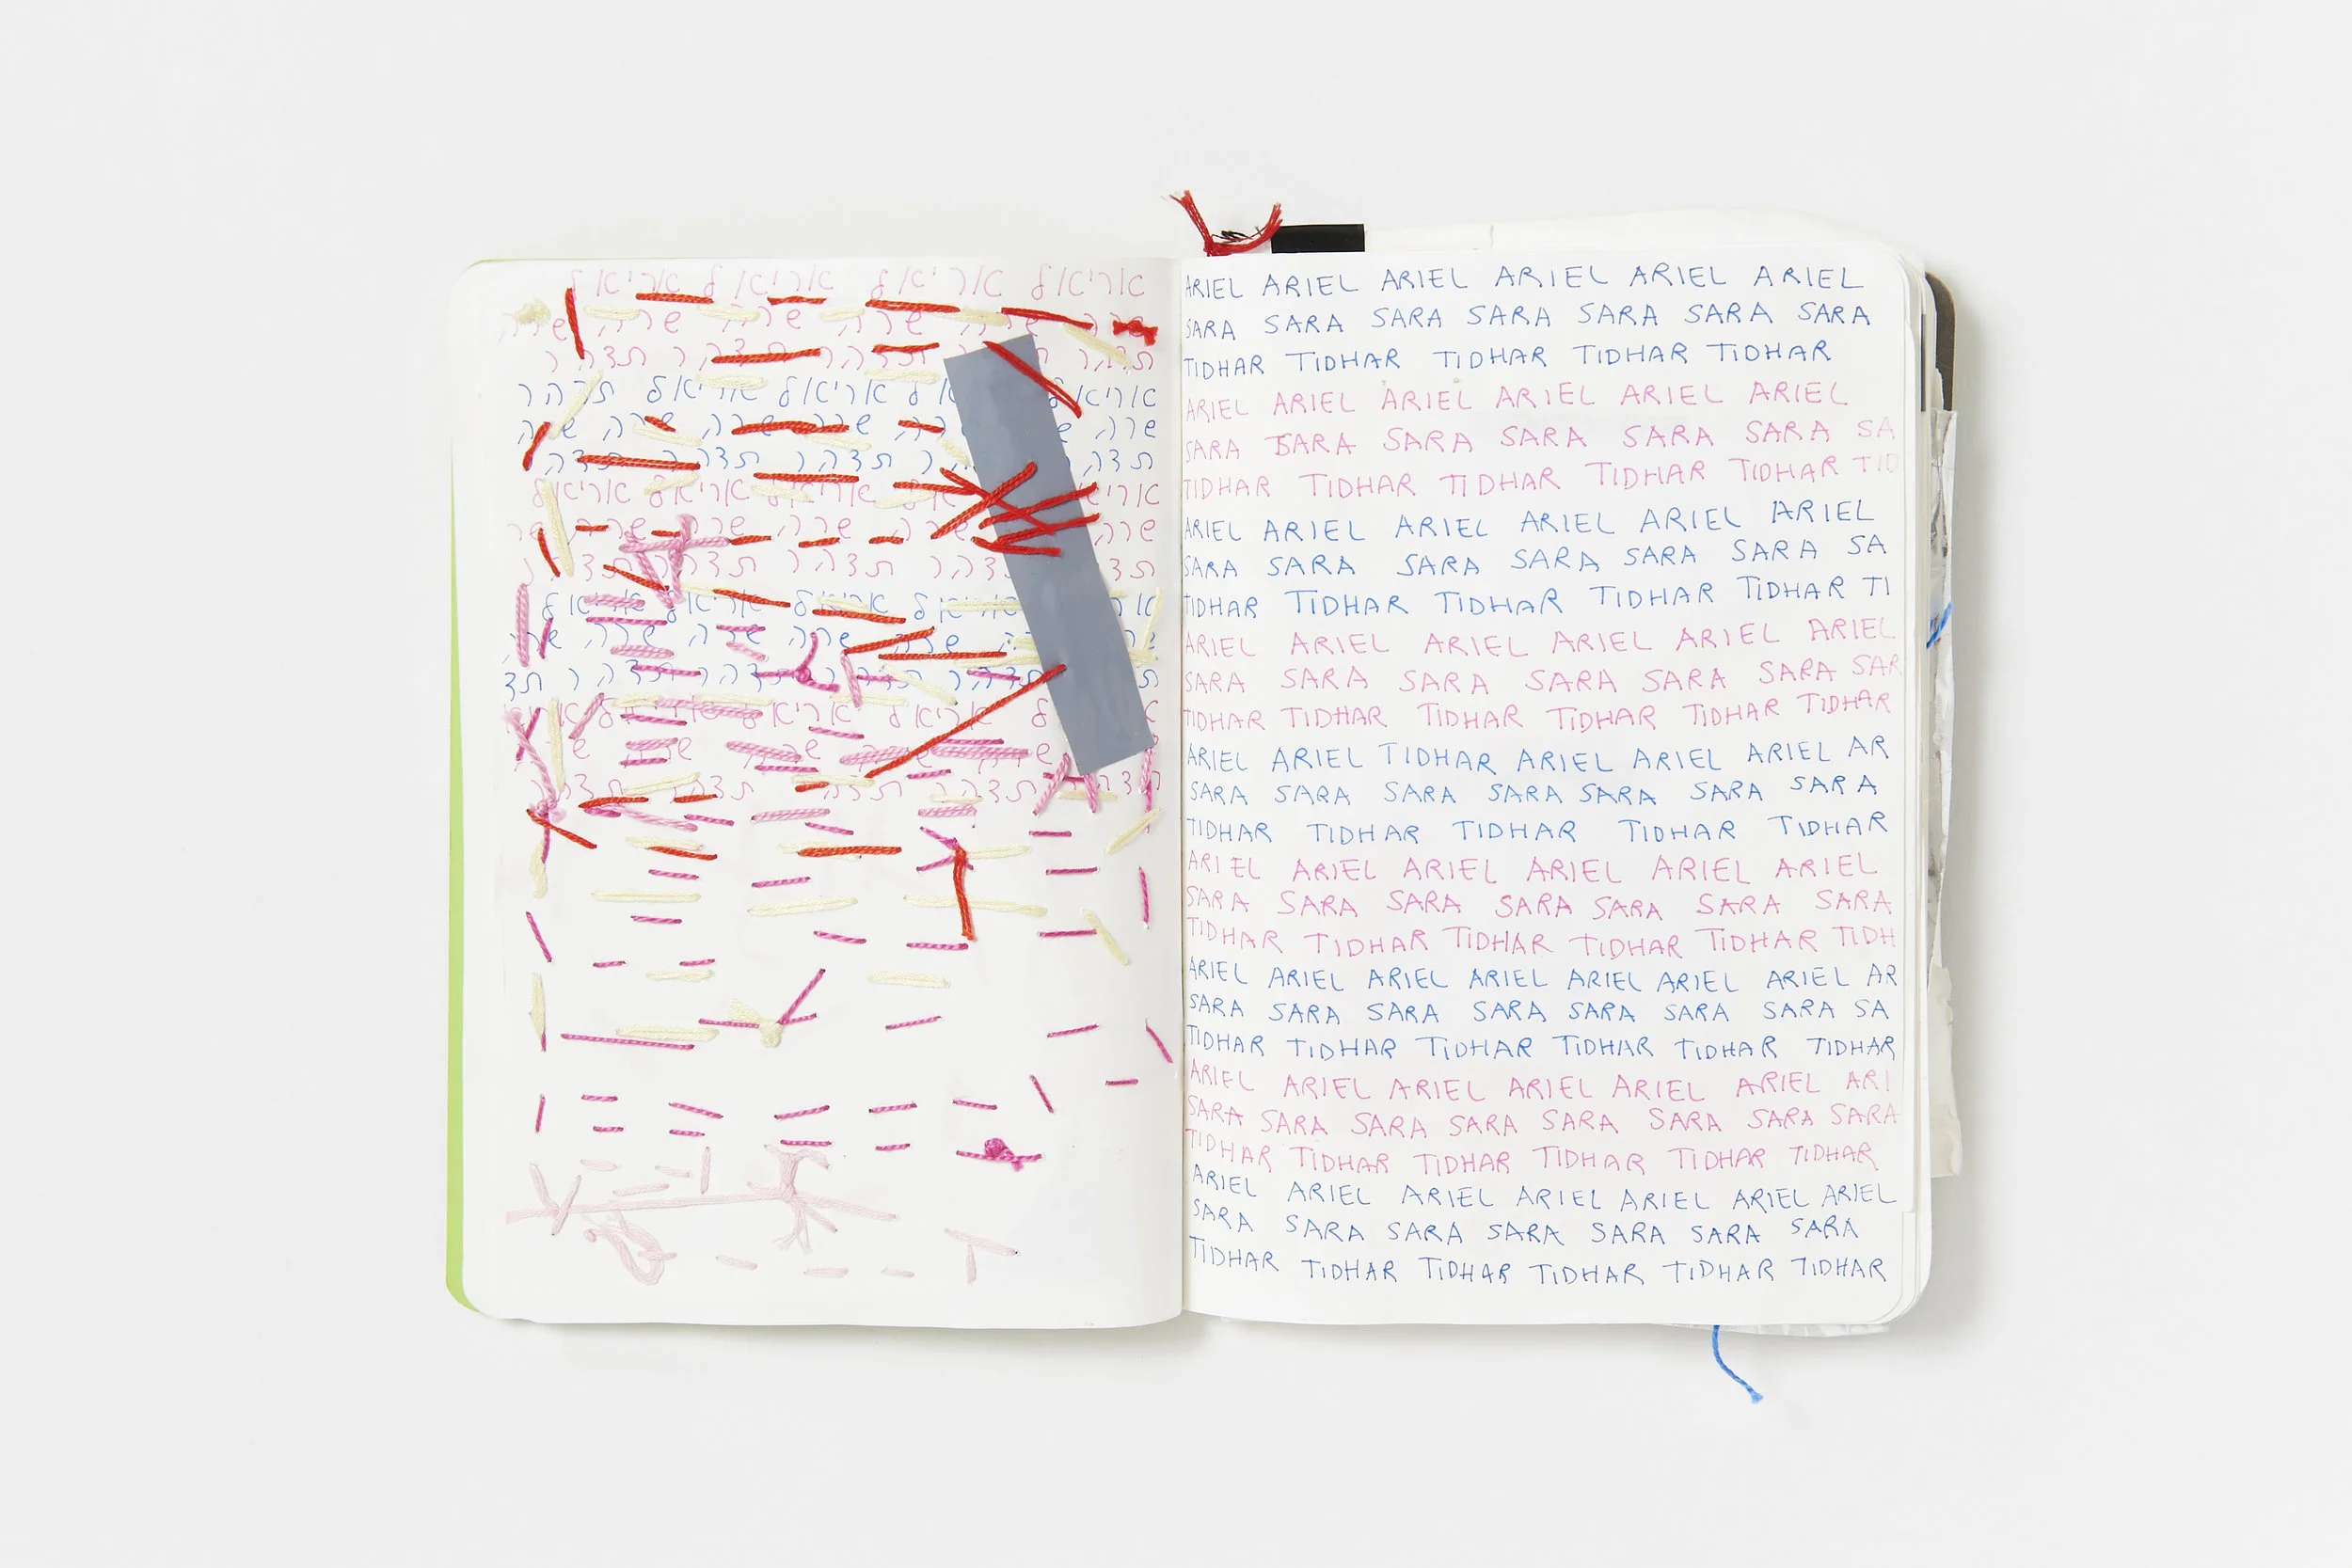 אריאל אריאל אריאל אריאל
שרה שרה שרה שרה שרה שרה
תדהר תדהר תדהר תדהר
אריאל אריאל אריאל תדהר
שרה שרה שרה שרה שרה
תדהר תדהר תדהר תדהר
אריאל אריאל אריאל
שרה שרה שרה שרה שרה שר
תדהר תדהר תדהר
אריאל אריאל אריאל אריאל
שרה שרה שרה שרה שרה
תדהר תדהר תדהר תדהר תד
אריאל אריאל אריאל
שרה שרה
תדהר תדהר תדהר תדהר
ARIEL ARIEL ARIEL ARIEL ARIEL ARIEL
SARA SARA SARA SARA SARA SARA SARA
TIDHAR TIDHAR TIDHAR TIDHAR TIDHAR
ARIEL ARIEL ARIEL ARIEL ARIEL ARIEL
SARA SARA SARA SARA SARA SARA SA
TIDHAR TIDHAR TIDHAR TIDHAR TIDHAR TID
ARIEL ARIEL ARIEL ARIEL ARIEL ARIEL
SARA SARA SARA SARA SARA SARA SA
TIDHAR TIDHAR TIDHAR TIDHAR TIDHAR TI
ARIEL ARIEL ARIEL ARIEL ARIEL ARIEL
SARA SARA SARA SARA SARA SARA SAR
TIDHAR TIDHAR TIDHAR TIDHAR TIDHAR TIDHAR
ARIEL ARIEL TIDHAR ARIEL ARIEL ARIEL AR
SARA SARA SARA SARA SARA SARA SARA
TIDHAR TIDHAR TIDHAR TIDHAR TIDHAR
ARIEL ARIEL ARIEL ARIEL ARIEL ARIEL
SARA SARA SARA SARA SARA SARA SARA
TIDHAR TIDHAR TIDHAR TIDHAR TIDHAR TIDH
ARIEL ARIEL ARIEL ARIEL ARIEL ARIEL ARIEL AR
SARA SARA SARA SARA SARA SARA SARA SA
TIDHAR TIDHAR TIDHAR TIDHAR TIDHAR TIDHAR
ARIEL ARIEL ARIEL ARIEL ARIEL ARIEL ARI
SARA SARA SARA SARA SARA SARA SARA SARA
TIDHAR TIDHAR TIDHAR TIDHAR TIDHAR TIDHAR
ARIEL ARIEL ARIEL ARIEL ARIEL ARIEL ARIEL
SARA SARA SARA SARA SARA SARA SARA
TIDHAR TIDHAR TIDHAR TIDHAR TIDHAR TIDHAR